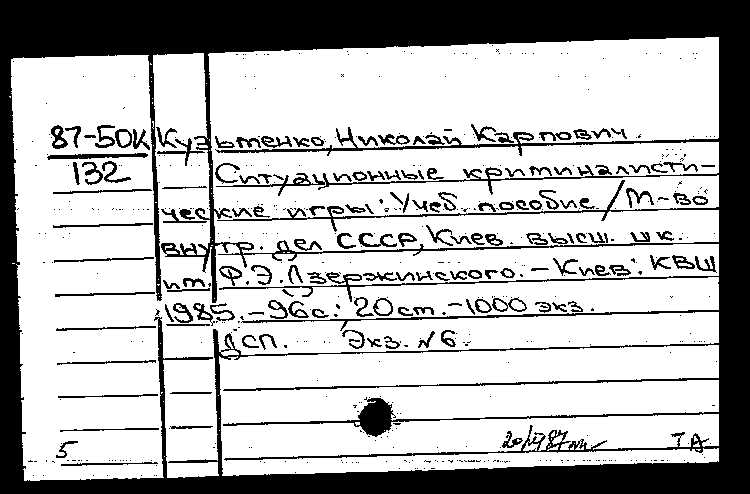 87-50К Кузьменко, Николай Карпович.
132 Ситуационные криминалисти-
ческие игры: Учеб. пособие / М-во
внутр. дел СССР, Киев. высш. шк.
им. Ф.Э. Дзержинского. - Киев: КВШ
1985. - 96 с.: 20 см. - 1000 экз.
ДСП. Экз. №6.
5 ТА